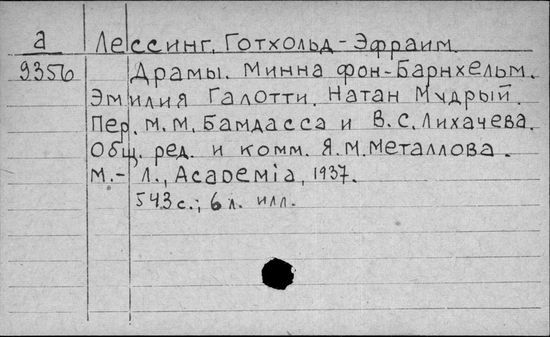 а Лессинг, Готхольд-Эфраим.
9356 Драмы. Минна фон-Барнхельм.
Эмилия Галотти. Натан Мудрый.
Пер. М.М. Бамдасса и В.С. Лихачева.
Общ. ред. и комм. Я.М. Металлова.
М.-Л., Academia, 1937.
543 с.; 6 л. илл.